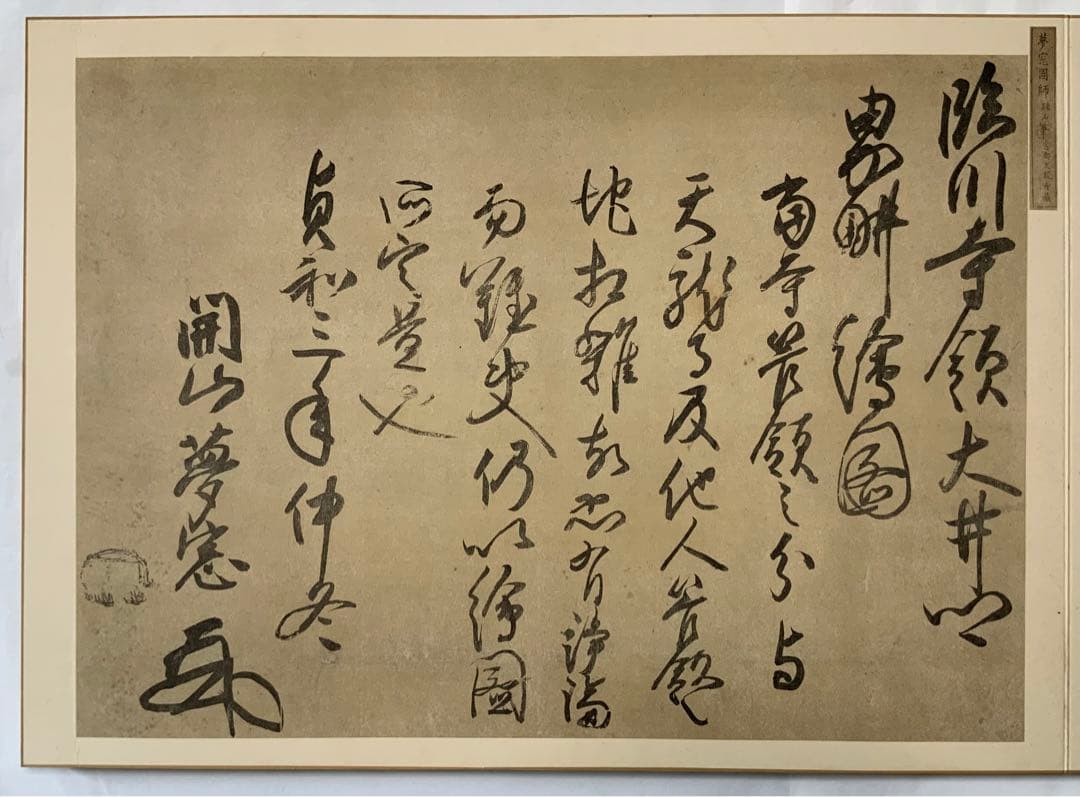 夢窓國師
臨川寺領大井郷
界畔繪圖
當寺管領之分与
天龍寺及他人管領之
地相雜故恐有諍論
而難 仍以繪圖
所定置也
貞和三年仲冬
開山夢窓